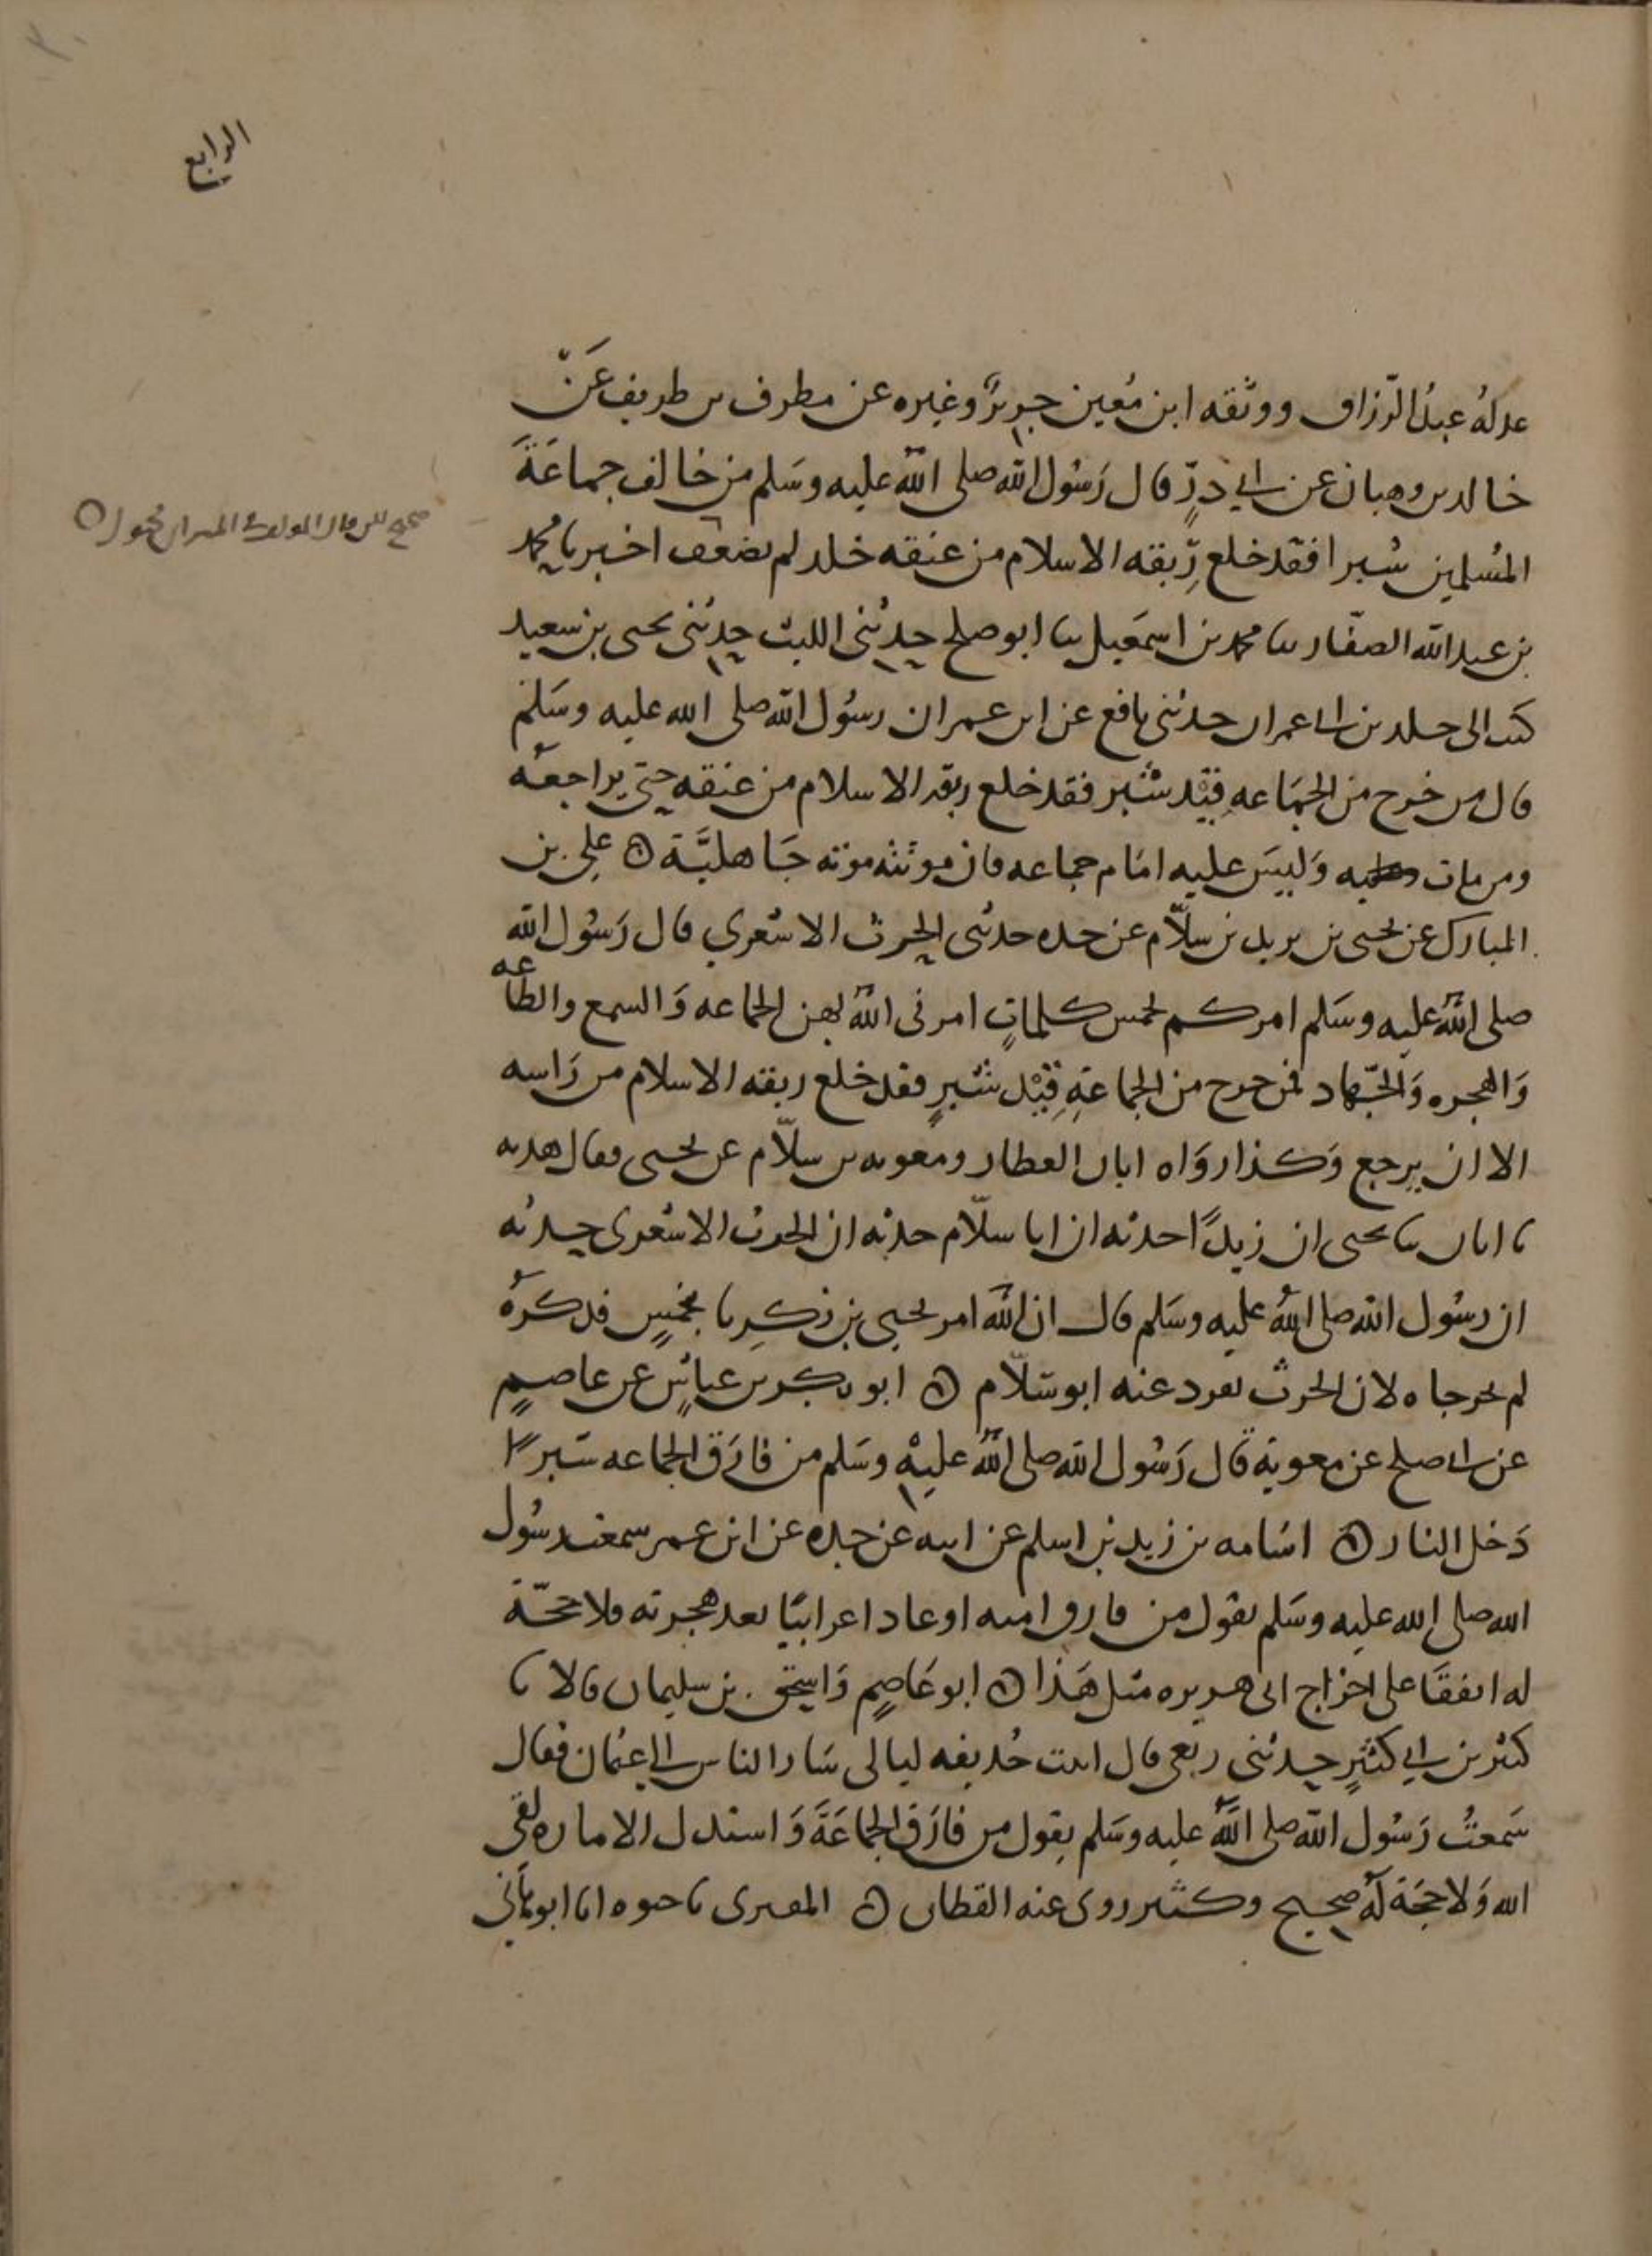 الرابع
عدله عبدُ الرّزاق ووثقه ابن مُعين جريرٌ وغيره عن مطرف بن طريف عَنْ
خالد بن وهبان عن ابي ذرٍّ قال رَسُول الله صلى اللهُ عليه وسَلم من خالف جماعَةَ
المُسلمين شبرا فقد خلع رِّبقه الاسلام من عنقه خلد لم يضعف اخبرنا محمد
صحيح لكن قال المولف في الميزان مجهول
بن عبد الله الصفّار نا محمد بن اسمَعيل نا ابو صلح حدثنى الليث حدثنى يحيى بن سعيد
كتب الى خلد بن ابى عمران حدثنى نافع عن ابن عمر ان رسُول الله صلى الله عليه وسَلم
قال من خرج من الجمَاعه قِيْد شبر فقد خلع ربقه الاسلام من عنقه حتى يراجعهُ
ومن مات وَليسَ عليه امَام جماعه فان موتته موته جَاهليَّة ه علي بن
المبارك عن يحيى بن يزيد بن سلّام عن جده حدثنى الحرث الاشعري قال رَسُول الله
صلى اللهُ عليه وسَلم امركم بخمس كلماتٍ امرنى اللهُ بهن الجماعه وَالسمع والطاعه
وَالهجره وَالجّهاد فمن خرج من الجماعَةِ قِيْد شبرٍ فقد خلع ربقه الاسلام من رَاسه
الا ان يرجع وَكذا رَوَاه ابان العطار ومعويه بن سلّام عن يحيى وقال هدبه
نا ابان نا يحيى ان زيدًا حدثه ان ابا سلّام حدثه ان الحرث الاشعرى حدثه
ان رسُول الله صلى اللهُ عليه وسَلم قال ان الله امر يحيى بن زكريا بخمسٍ فذكرهُ
لم يخرجاه لان الحرث تفرد عنه ابو سَلّام ه ابو بكر بن عياشٍ عن عاصمٍ
عن ابى صلح عن معويَة قال رَسُول الله صلى اللهُ عليْه وسَلم من فارَق الجماعه شبرًا
دَخل النار ه اسَامه بن زيد بن اسلم عن ابيه عن جده عن ابن عمر سمعت رسُول
الله صلى الله عليه وسَلم يقول من فارق امته او عاد اعرابيًا بعد هجرته فلا حجّة
له اتفقَا على اخراج ابى هريره مثل هَذا ه ابو عَاصمٍ وَاسحق بن سليمان قالا نا
كثير بن ابي كثيرٍ حدثنى ربعى قال اتيت حُذيفه ليالى سَار الناس الى عثمان فقال
سَمعتُ رَسُول الله صلى اللهُ عليه وسَلم يقول من فارَق الجماعَةَ وَاستذل الاماره لقى
الله وَلا حجَة لهُ صحيح وكثير روى عنه القطان ه المقرى نا حيوه انا ابو هانى